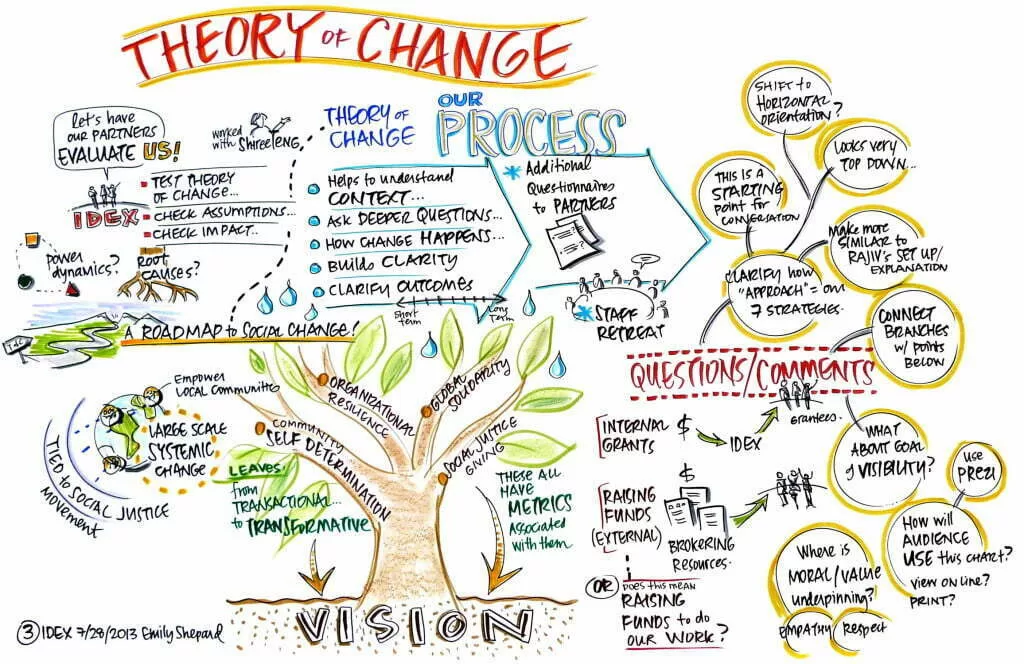 THEORY OF CHANGE
Let's have
our PARTNERS
EVALUATE US!
IDEX
TEST THEORY
OF CHANGE...
CHECK ASSUMPTIONS...
CHECK IMPACT...
worked
with Shiree Teng
POWER
dynamics?
ROOT
CAUSES?
A ROADMAP to SOCIAL CHANGE!
THEORY OF
CHANGE
OUR
PROCESS
Helps to understand
CONTEXT...
ASK DEEPER QUESTIONS...
HOW CHANGE HAPPENS...
BUILDS CLARITY
CLARIFY OUTCOMES
Short
term
Long
Term
Additional
Questionnaires
to PARTNERS
STAFF
RETREAT
SHIFT to
HORIZONTAL
ORIENTATION?
LOOKS VERY
TOP DOWN...
THIS IS A
STARTING
POINT for
CONVERSATION
MAKE MORE
SIMILAR to
RAJIV'S SET UP/
EXPLANATION
CLARIFY HOW
"APPROACH" = OUR
7 STRATEGIES.
CONNECT
BRANCHES
w/ POINTS
BELOW
Empower
Local Communities
LARGE SCALE
SYSTEMIC
CHANGE
TIED to SOCIAL JUSTICE
MOVEMENT
LEAVES:
from
TRANSACTIONAL...
to TRANSFORMATIVE
COMMUNITY
SELF DETERMINATION
ORGANIZATIONAL
RESILIENCE
GLOBAL
SOLIDARITY
SOCIAL JUSTICE
GIVING
THESE ALL
HAVE
METRICS
Associated
with them
VISION
QUESTIONS/COMMENTS
INTERNAL
GRANTS
$
IDEX
grantees.
RAISING
FUNDS
(EXTERNAL)
BROKERING
RESOURCES.
OR
DOES THIS MEAN
RAISING
FUNDS to do
OUR WORK?
WHAT
ABOUT GOAL
of VISIBILITY?
USE
PREZI
How will
AUDIENCE
USE this CHART?
VIEW ON LINE?
PRINT?
Where is
MORAL/VALUE
underpinning?
EMPATHY
Respect
3 IDEX 7/28/2013 Emily Shepard